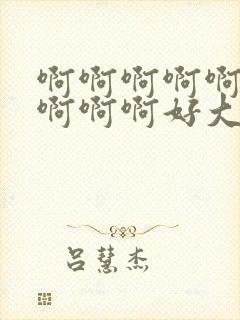 啊啊啊啊啊
啊啊啊好大
吕慧杰